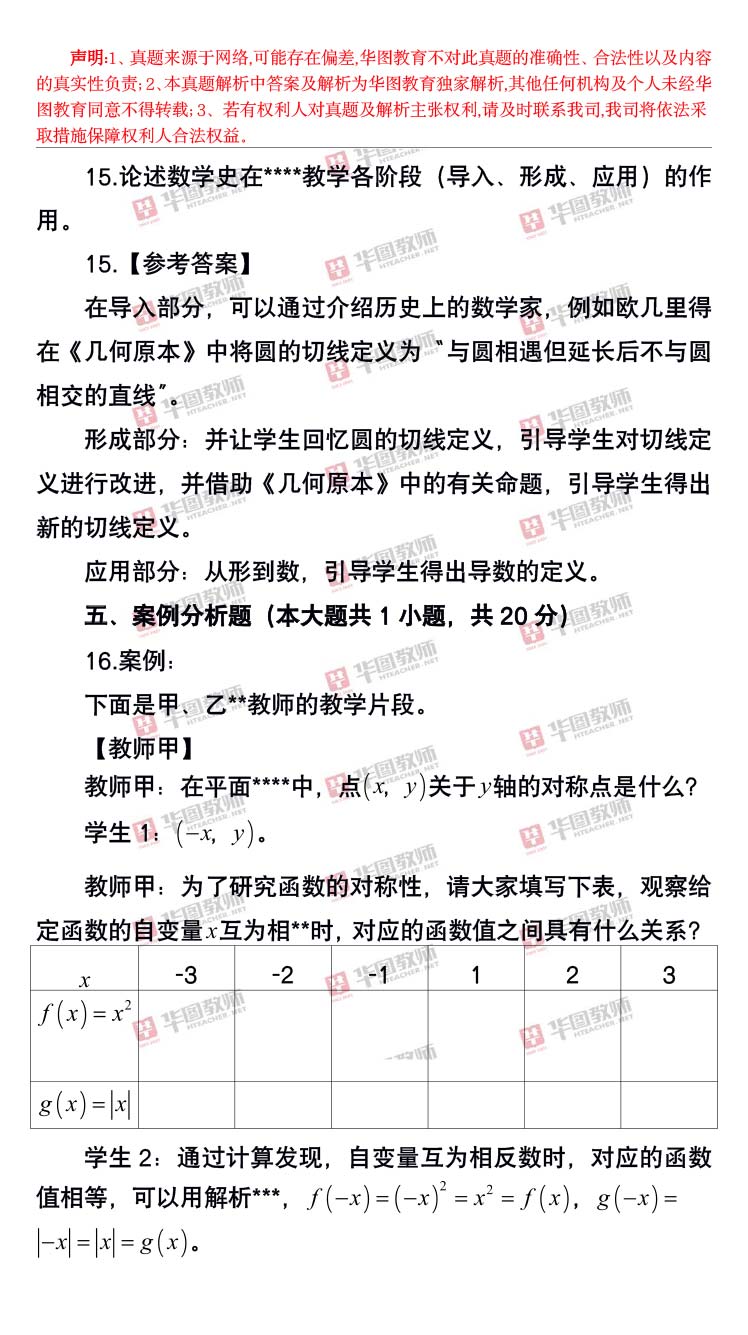 声明:1、真题来源于网络,可能存在偏差,华图教育不对此真题的准确性、合法性以及内容
的真实性负责;2、本真题解析中答案及解析为华图教育独家解析,其他任何机构及个人未经华
图教育同意不得转载;3、若有权利人对真题及解析主张权利,请及时联系我司,我司将依法采
取措施保障权利人合法权益。
15.论述数学史在****教学各阶段（导入、形成、应用）的作
用。
15.【参考答案】
在导入部分，可以通过介绍历史上的数学家，例如欧几里得
在《几何原本》中将圆的切线定义为〝与圆相遇但延长后不与圆
相交的直线〞。
形成部分：并让学生回忆圆的切线定义，引导学生对切线定
义进行改进，并借助《几何原本》中的有关命题，引导学生得出
新的切线定义。
应用部分：从形到数，引导学生得出导数的定义。
五、案例分析题（本大题共 1 小题，共 20 分）
16.案例：
下面是甲、乙**教师的教学片段。
【教师甲】
教师甲：在平面****中，点(x, y)关于y轴的对称点是什么？
学生 1：(−x, y)。
教师甲：为了研究函数的对称性，请大家填写下表，观察给
定函数的自变量x互为相**时，对应的函数值之间具有什么关系？
x -3 -2 -1 1 2 3
f(x)=x²
g(x)=|x|
学生 2：通过计算发现，自变量互为相反数时，对应的函数
值相等，可以用解析***，f(−x)=(−x)²=x²=f(x)，g(−x)=
|−x|=|x|=g(x)。